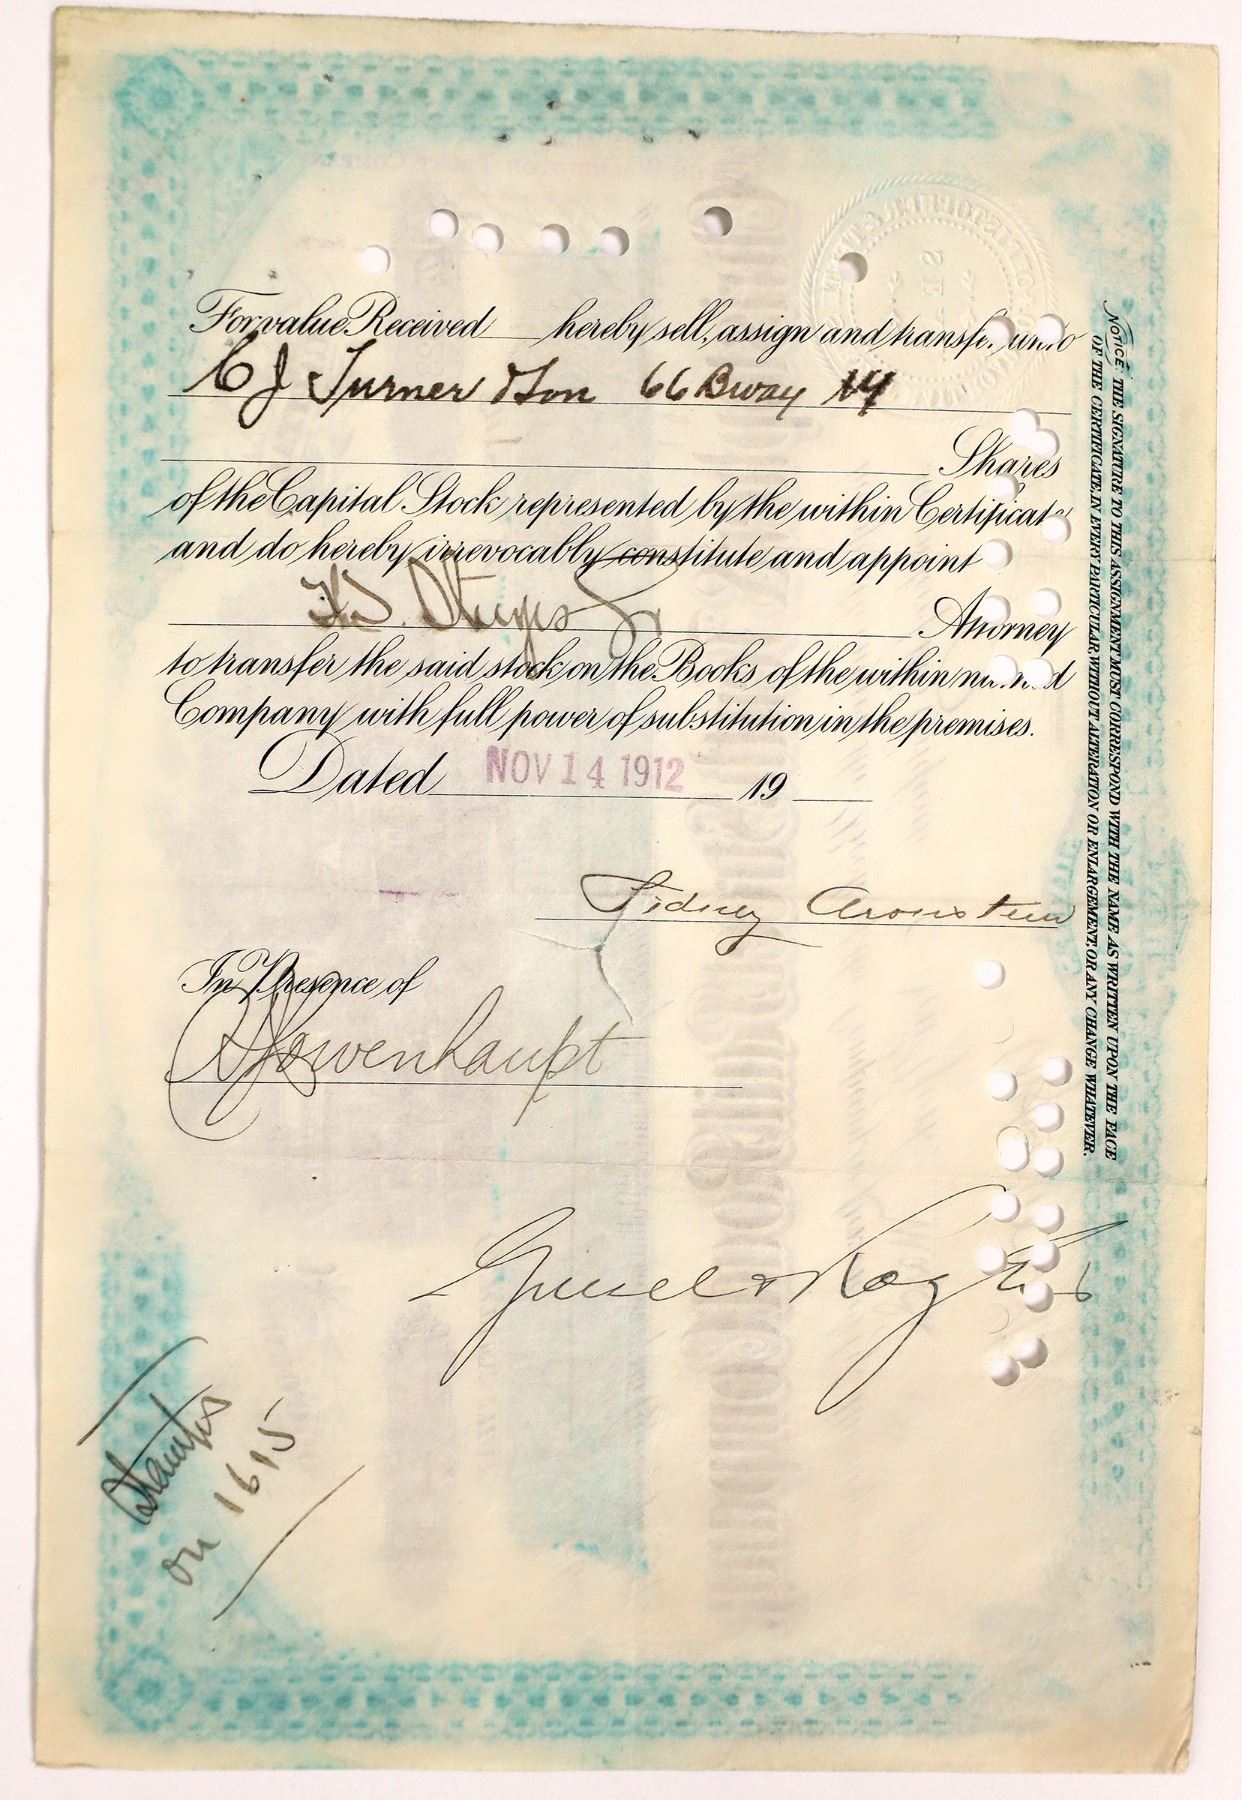 For value Received hereby sell, assign and transfer unto
C J Turner & Son 66 Bway NY
Shares
of the Capital Stock represented by the within Certificate
and do hereby irrevocably constitute and appoint
Jr
Attorney
to transfer the said stock on the Books of the within named
Company with full power of substitution in the premises.
Dated NOV 14 1912 19
Sidney Aronstein
In Presence of
Lowenhaupt
Stamps
on 1615
NOTICE: THE SIGNATURE TO THIS ASSIGNMENT MUST CORRESPOND WITH THE NAME AS WRITTEN UPON THE FACE
OF THE CERTIFICATE, IN EVERY PARTICULAR, WITHOUT ALTERATION OR ENLARGEMENT, OR ANY CHANGE WHATEVER.